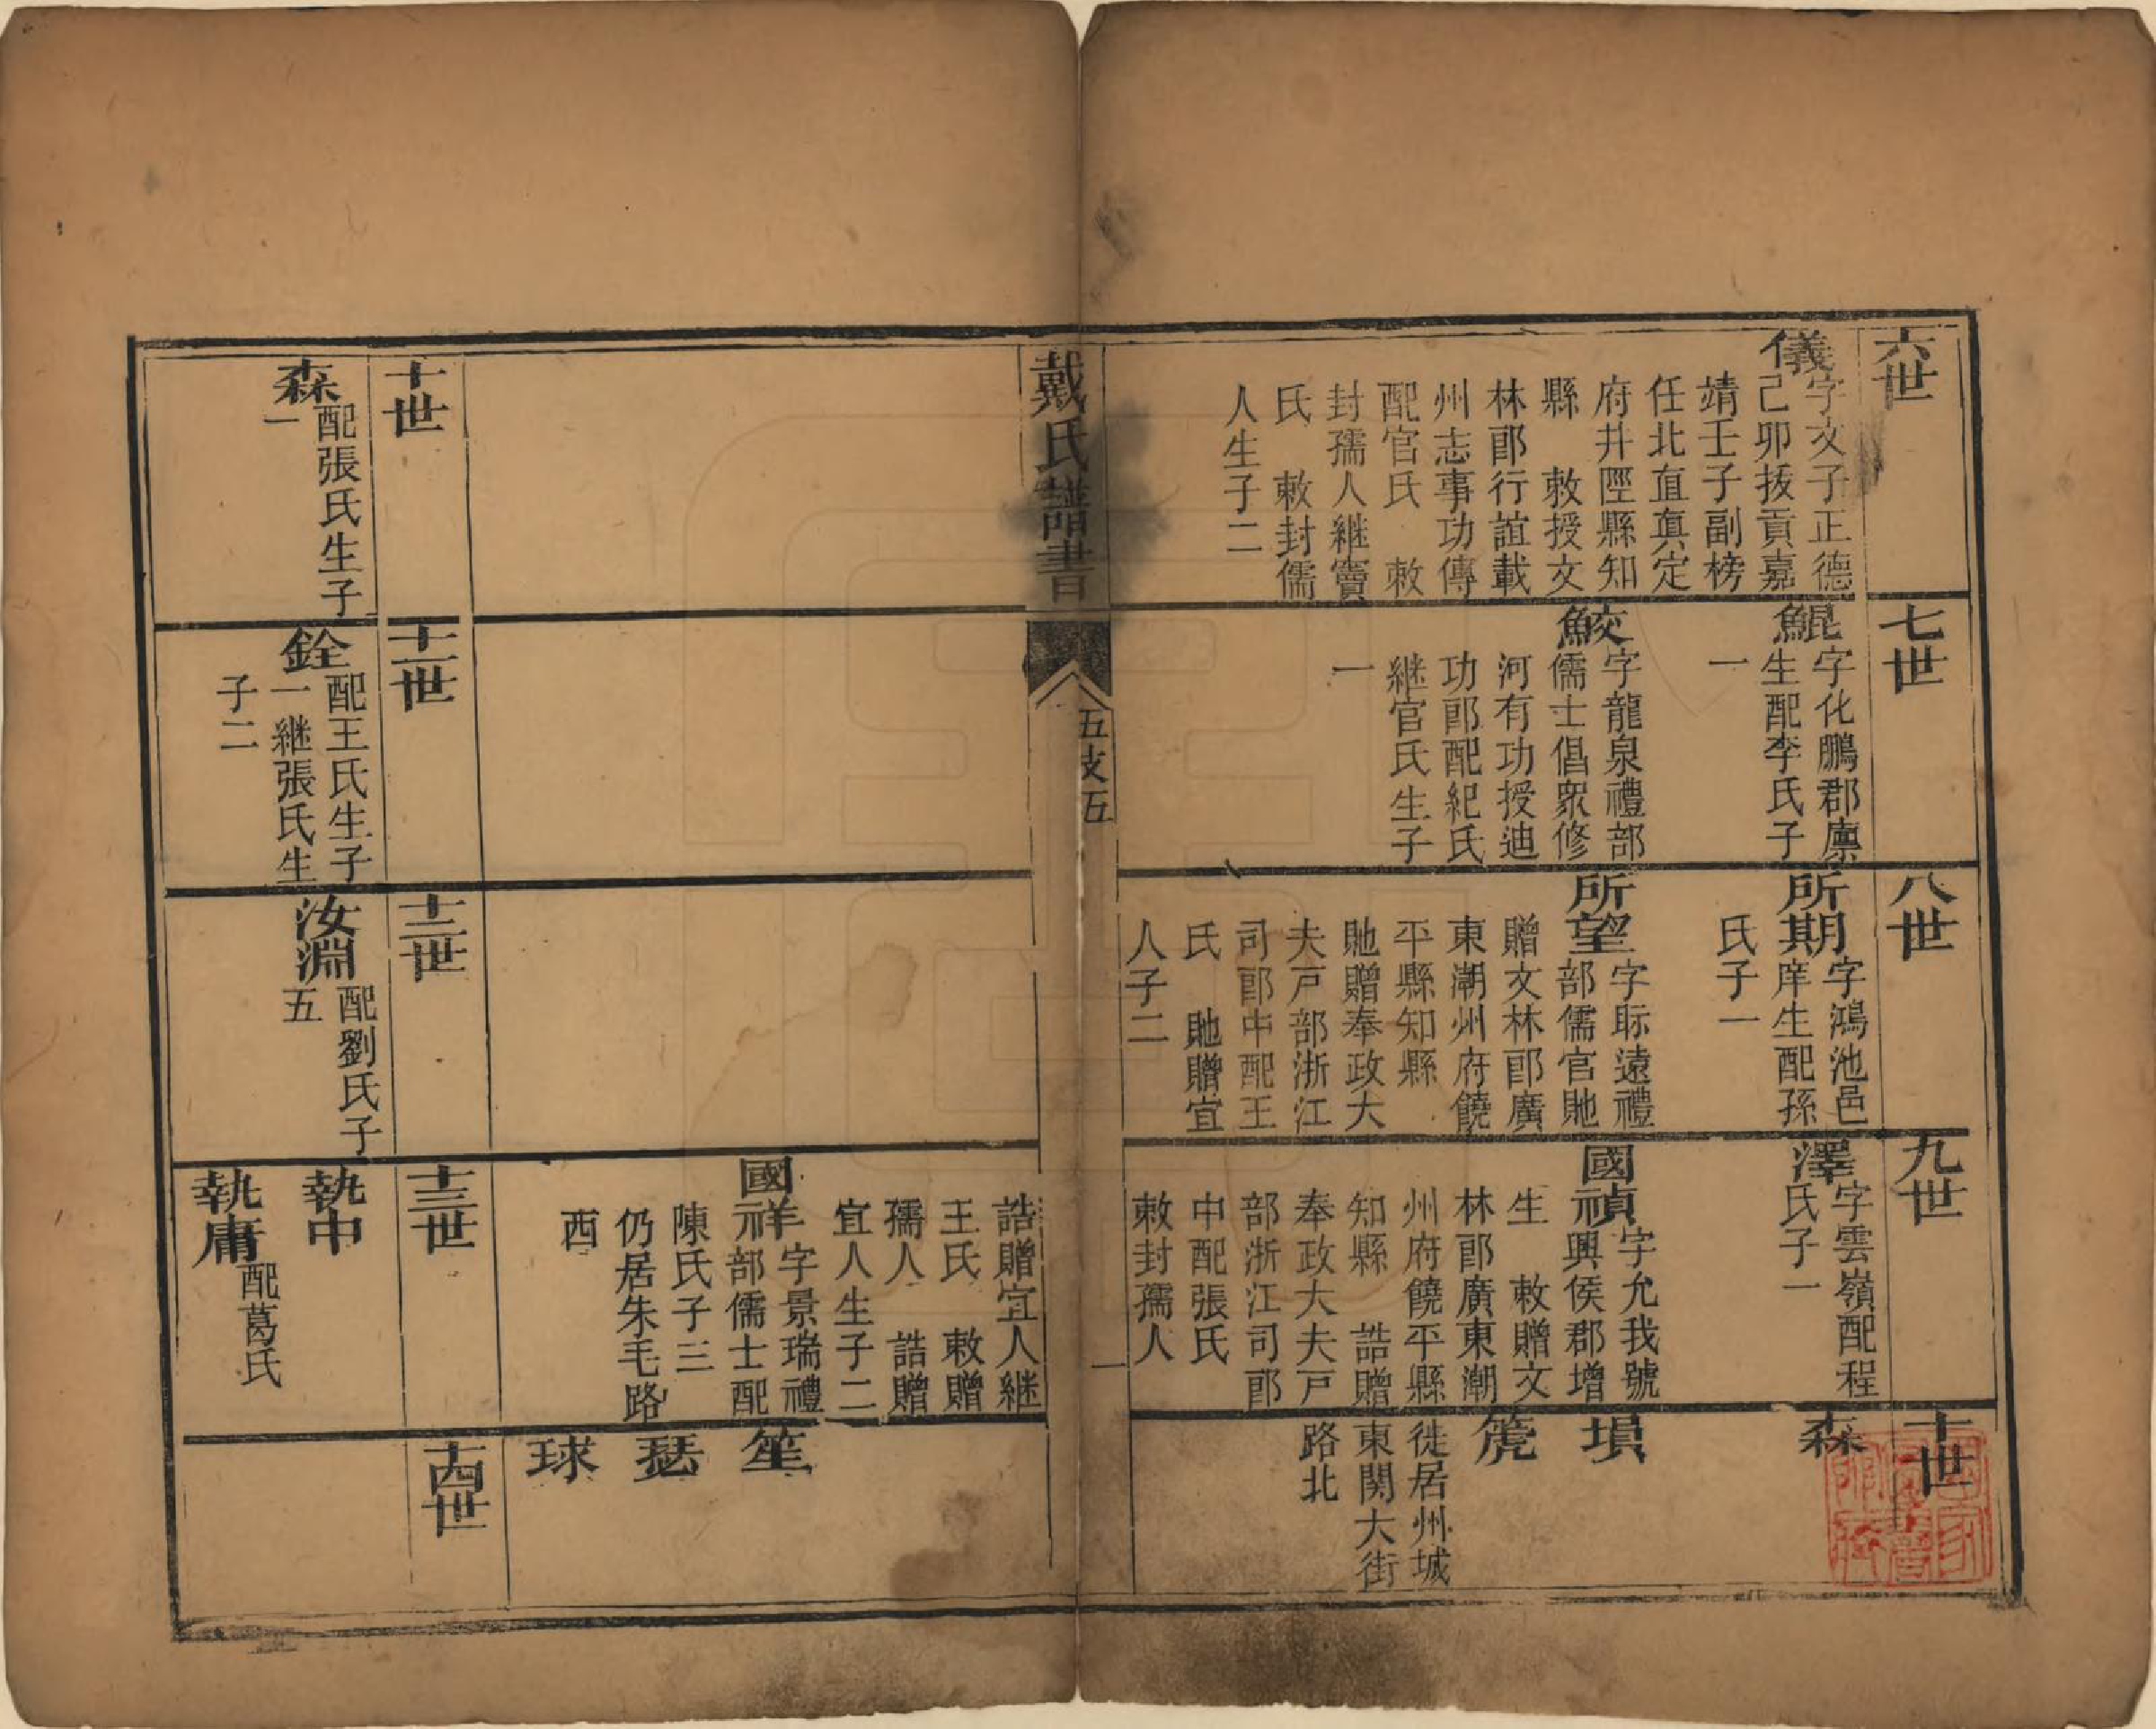 六世
儀
字文子正德
己卯拔貢嘉
靖壬子副榜
任北直真定
府井陘縣知
縣　敕授文
林郎行誼載
州志事功傳
配官氏　敕
封孺人継竇
氏　敕封儒
人生子二
七世
鯤
字化鵬郡廪
生配李氏子
一
鮫
字龍泉禮部
儒士倡衆修
河有功授迪
功郎配紀氏
継官氏生子
一
八世
所期
字鴻池邑
庠生配孫
氏子一
所望
字眎遠禮
部儒官貤
贈文林郎廣
東潮州府饒
平縣知縣
貤贈奉政大
夫戸部浙江
司郎中配王
氏　貤贈宜
人子二
九世
澤
字雲嶺配程
氏子一
國禎
字允我號
興侯郡增
生　敕贈文
林郎廣東潮
州府饒平縣
知縣　誥贈
奉政大夫戸
部浙江司郎
中配張氏
敕封孺人
十世
森
塤
箎
徙居州城
東関大街
路北
戴氏譜書
五支五
一
誥贈宜人継
王氏　敕贈
孺人　誥贈
宜人生子二
國祥
字景瑞禮
部儒士配
陳氏子三
仍居朱毛路
西
笙
瑟
球
十世
森
配張氏生子
一
十一世
銓
配王氏生子
一継張氏生
子二
十二世
汝淵
配劉氏子
五
十三世
執中
執庸
配葛氏
十四世